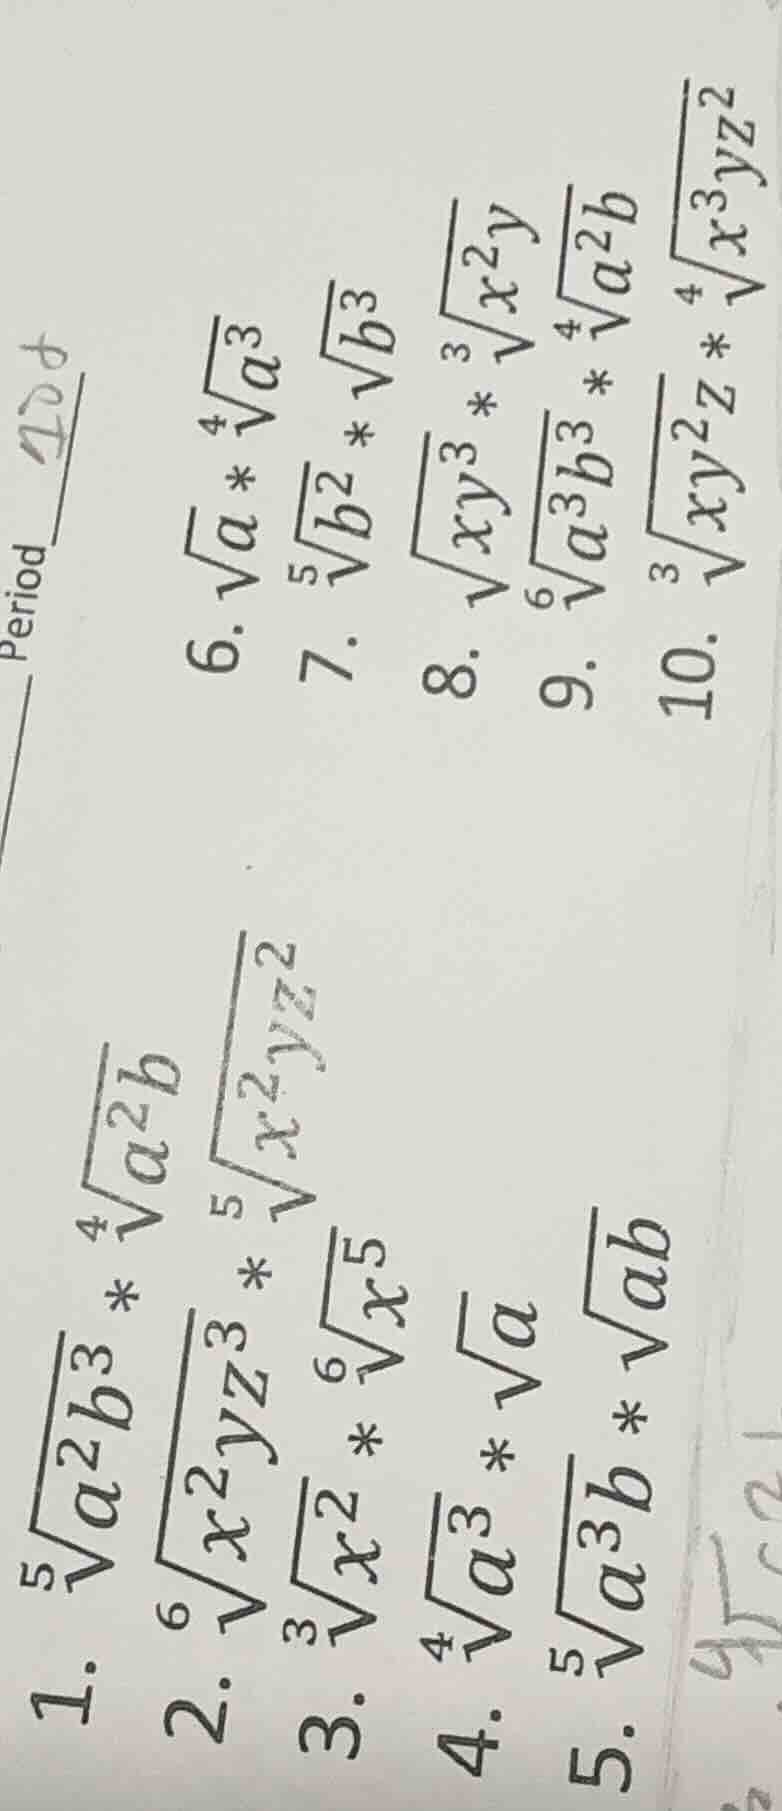 Period
1. ⁵√(a²b³) * ⁴√(a²b)
2. ⁶√(x²yz³) * ⁵√(x²yz²)
3. ³√(x²) * ⁶√(x⁵)
4. ⁴√(a³) * √a
5. ⁵√(a³b) * √(ab)
6. √a * ⁴√(a³)
7. ⁵√(b²) * √(b³)
8. √(xy³) * ³√(x²y)
9. ⁶√(a³b³) * ⁴√(a²b)
10. ³√(xy²z) * ⁴√(x³yz²)